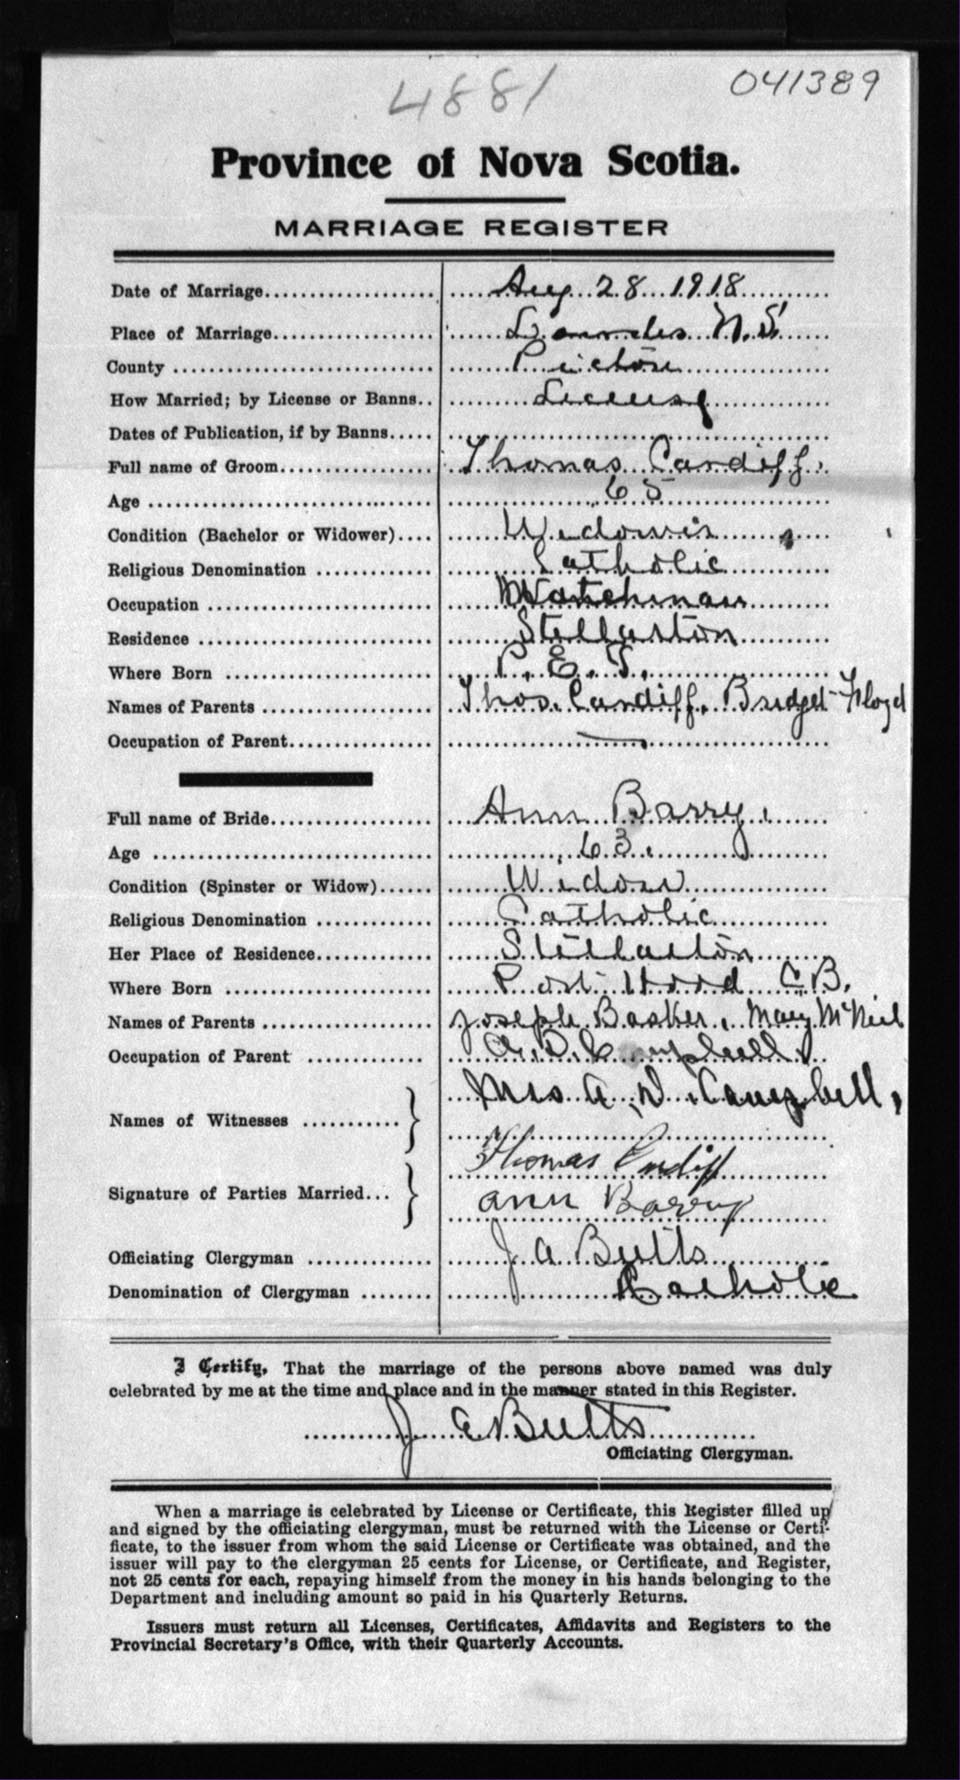 4881
041389
Province of Nova Scotia.
MARRIAGE REGISTER
Date of Marriage.................... Aug 28 1918
Place of Marriage................... Lourdes N.S.
County ............................. Pictou
How Married; by License or Banns.. License
Dates of Publication, if by Banns.....
Full name of Groom................. Thomas Cardiff.
Age ............................... 65
Condition (Bachelor or Widower).... Widower
Religious Denomination ............ Catholic
Occupation ........................ Watchman
Residence ......................... Stellarton
Where Born ........................ P. E. I.
Names of Parents .................. Thos. Cardiff. Bridget Floyd
Occupation of Parent............... —
Full name of Bride................. Ann Barry.
Age ............................... 63.
Condition (Spinster or Widow)...... Widow
Religious Denomination ............ Catholic
Her Place of Residence............. Stellarton
Where Born ........................ Port Hood C.B.
Names of Parents .................. Joseph Basker, Mary McNeil
Occupation of Parent ............ A. D. Campbell
Names of Witnesses ........... } Mrs A. D. Campbell,
Signature of Parties Married... } Thomas Cardiff
Ann Barry
Officiating Clergyman ............. J A Butts
Denomination of Clergyman ........ Catholic
I Certify, That the marriage of the persons above named was duly
celebrated by me at the time and place and in the manner stated in this Register.
J A Butts
Officiating Clergyman.
When a marriage is celebrated by License or Certificate, this Register filled up
and signed by the officiating clergyman, must be returned with the License or Certi-
ficate, to the issuer from whom the said License or Certificate was obtained, and the
issuer will pay to the clergyman 25 cents for License, or Certificate, and Register,
not 25 cents for each, repaying himself from the money in his hands belonging to the
Department and including amount so paid in his Quarterly Returns.
Issuers must return all Licenses, Certificates, Affidavits and Registers to the
Provincial Secretary's Office, with their Quarterly Accounts.